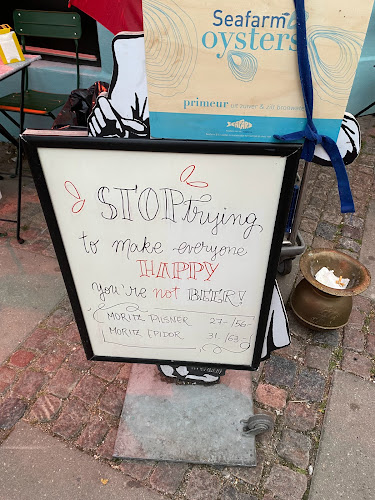 Seafarm
oysters
primeur
STOP trying
to make everyone
HAPPY
you're not BEER!
MORITZ PILSNER 27-/56-
MORITZ EPIDOR 31/63-